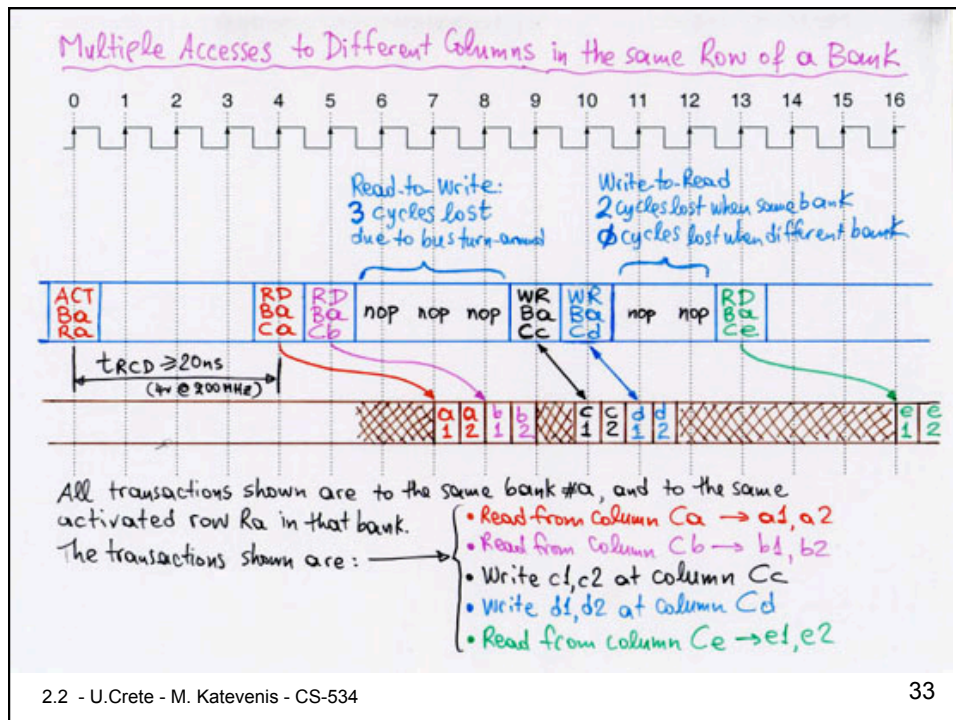 Multiple Accesses to Different Columns in the same Row of a Bank
0 1 2 3 4 5 6 7 8 9 10 11 12 13 14 15 16
Read-to-Write:
3 cycles lost
due to bus turn-around
Write-to-Read
2 cycles lost when same bank
0 cycles lost when different bank
ACT Ba Ra
RD Ba Ca
RD Ba Cb
nop nop nop
WR Ba Cc
WR Ba Cd
nop nop
RD Ba Ce
tRCD ≥20ns
(4~ @ 200MHz)
a1 a2 b1 b2 c1 c2 d1 d2 e1 e2
All transactions shown are to the same bank #a, and to the same
activated row Ra in that bank.
The transactions shown are:
• Read from column Ca → a1, a2
• Read from column Cb → b1, b2
• Write c1, c2 at column Cc
• Write d1, d2 at column Cd
• Read from column Ce → e1, e2
2.2 - U.Crete - M. Katevenis - CS-534
33